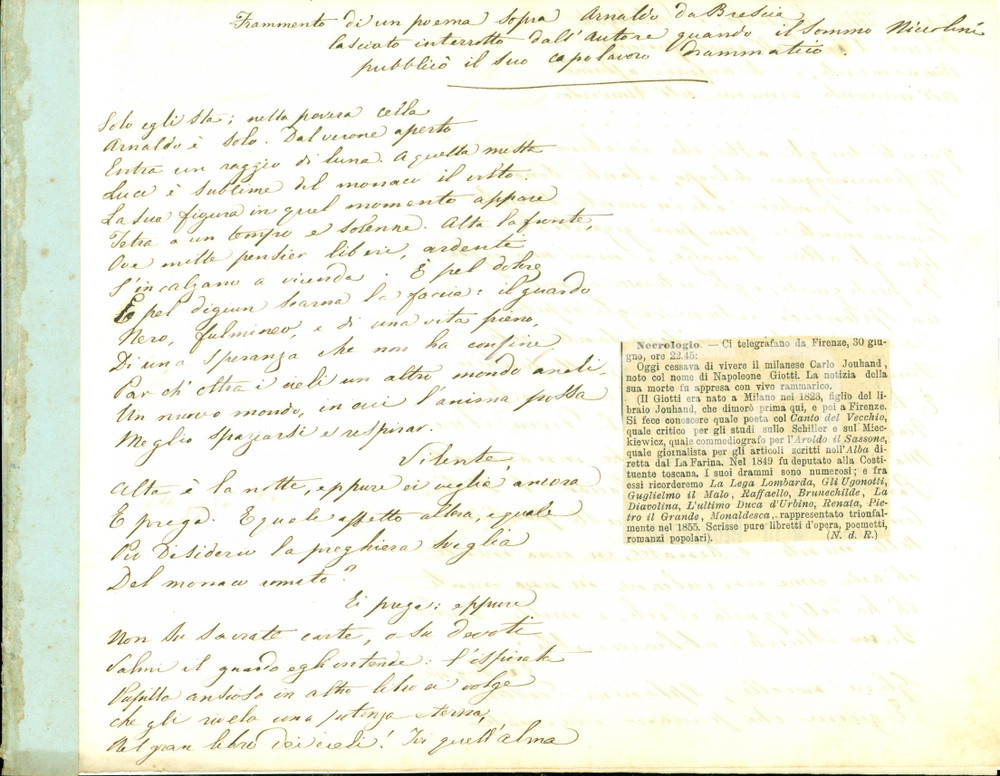 Frammento di un poema sopra Arnaldo da Brescia
lasciato interrotto dall'Autore quando il sommo Niccolini
pubblicò il suo capolavoro drammatico.
Solo egli sta; nella povera cella
Arnaldo è solo. Dal verone aperto
Entra un raggio di luna. A quella mesta
Luce è sublime del monaco il volto.
La sua figura in quel momento appare
Tetra a un tempo e solenne. Alta la fronte,
Ove mille pensier liberi, ardenti
S'incalzano a vicenda. È pel dolore
E pel digiun scarna la faccia: il guardo
Nero, fulmineo, e di una vita pieno,
Di una speranza che non ha confine.
Par ch'oltra i cieli un altro mondo aneli.
Un nuovo mondo, in cui l'anima possa
Meglio spaziarsi e respirar.
Silente,
Alta è la notte, eppure ei veglia ancora
E prega. E quale affetto allora, e quale
Pio desiderio la preghiera sveglia
Del monaco romito?
Ei prega: eppure
Non su sacrate carte, o su devoti
Salmi il guardo egli intende: l'ispirata
Pupilla ansiosa in altro libro ei volge
che gli rivela una potenza eterna,
Nel gran libro dei cieli! Ivi quell'alma
Necrologio. — Ci telegrafano da Firenze, 30 giu-
gno, ore 22.45:
Oggi cessava di vivere il milanese Carlo Jouhand,
noto col nome di Napoleone Giotti. La notizia della
sua morte fu appresa con vivo rammarico.
(Il Giotti era nato a Milano nel 1823, figlio del li-
braio Jouhand, che dimorò prima qui, e poi a Firenze.
Si fece conoscere quale poeta col Canto del Vecchio,
quale critico per gli studi sullo Schiller e sul Miec-
kiewicz, quale commediografo per l'Aroldo il Sassone,
quale giornalista per gli articoli scritti nell'Alba di-
retta dal La Farina. Nel 1849 fu deputato alla Costi-
tuente toscana. I suoi drammi sono numerosi; e fra
essi ricorderemo La Lega Lombarda, Gli Ugonotti,
Guglielmo il Malo, Raffaello, Brunechilde, La
Diavolina, L'ultimo Duca d'Urbino, Renata, Pie-
tro il Grande, Monaldesca, rappresentato trionfal-
mente nel 1855. Scrisse pure libretti d'opera, poemetti,
romanzi popolari). (N. d. R.)